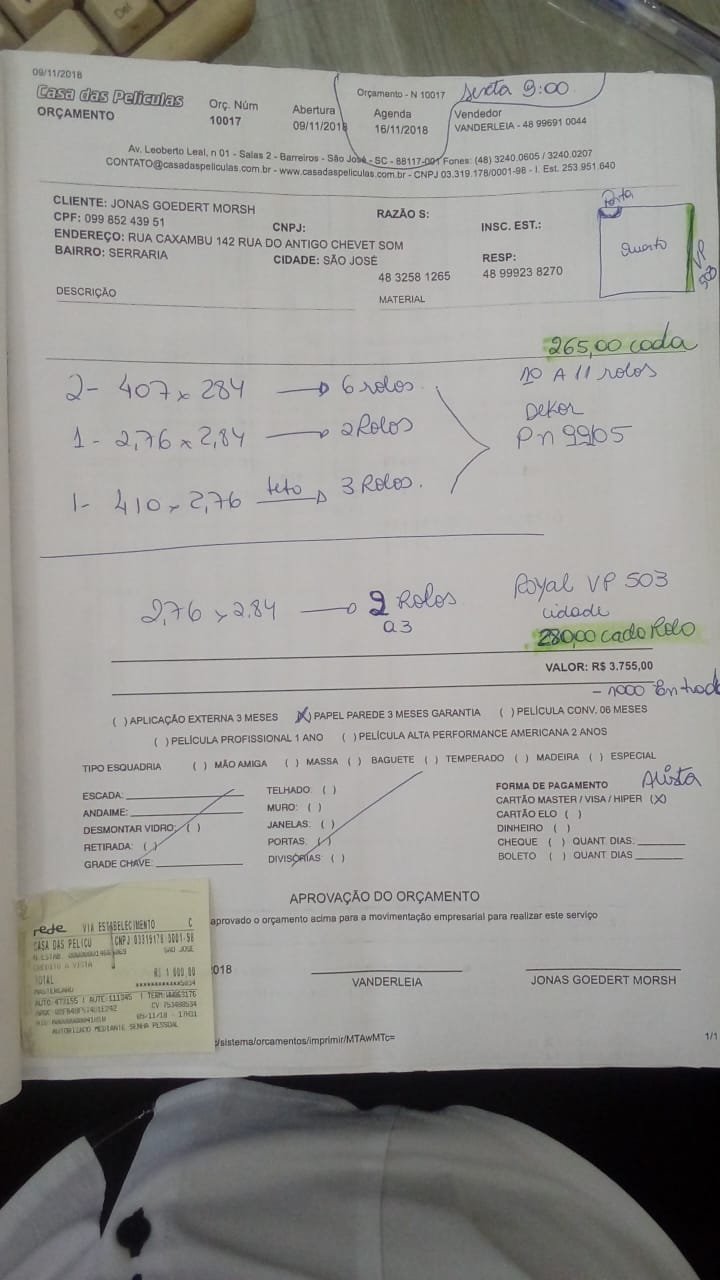 Del
09/11/2018
Casa das Películas
ORÇAMENTO
Orç. Núm
10017
Abertura
09/11/2018
Orçamento - N 10017
Agenda
16/11/2018
sexta 9:00
Vendedor
VANDERLEIA - 48 99691 0044
Av. Leoberto Leal, n 01 - Salas 2 - Barreiros - São José - SC - 88117-001 Fones: (48) 3240.0605 / 3240.0207
CONTATO@casadaspeliculas.com.br - www.casadaspeliculas.com.br - CNPJ 03.319.178/0001-98 - I. Est. 253.951.640
CLIENTE: JONAS GOEDERT MORSH
RAZÃO S:
CPF: 099 852 439 51
CNPJ:
INSC. EST.:
ENDEREÇO: RUA CAXAMBU 142 RUA DO ANTIGO CHEVET SOM
BAIRRO: SERRARIA
CIDADE: SÃO JOSÉ
RESP:
48 3258 1265
48 99923 8270
Porta
Quarto
VP 503
DESCRIÇÃO
MATERIAL
265,00 cada
2- 407 x 284 → 6 rolos
10 A 11 rolos
1- 2,76 x 2,84 → 2 Rolos
Dekor
Pn 9905
1- 410 x 2,76 teto → 3 Rolos.
2,76 x 2,84 → 2 Rolos
a 3
Royal VP 503
cidade
280,00 cada Rolo
VALOR: R$ 3.755,00
- 1000 Entrada
( ) APLICAÇÃO EXTERNA 3 MESES (X) PAPEL PAREDE 3 MESES GARANTIA ( ) PELÍCULA CONV. 06 MESES
( ) PELÍCULA PROFISSIONAL 1 ANO ( ) PELÍCULA ALTA PERFORMANCE AMERICANA 2 ANOS
TIPO ESQUADRIA ( ) MÃO AMIGA ( ) MASSA ( ) BAGUETE ( ) TEMPERADO ( ) MADEIRA ( ) ESPECIAL
ESCADA:
ANDAIME:
DESMONTAR VIDRO: ( )
RETIRADA: ( )
GRADE CHAVE:
TELHADO: ( )
MURO: ( )
JANELAS: ( )
PORTAS: ( )
DIVISÓRIAS ( )
FORMA DE PAGAMENTO
Avista
CARTÃO MASTER / VISA / HIPER (X)
CARTÃO ELO ( )
DINHEIRO ( )
CHEQUE ( ) QUANT DIAS:
BOLETO ( ) QUANT DIAS
APROVAÇÃO DO ORÇAMENTO
aprovado o orçamento acima para a movimentação empresarial para realizar este serviço
2018
VANDERLEIA
JONAS GOEDERT MORSH
rede VIA ESTABELECIMENTO C
CASA DAS PELICU CNPJ 03319178 0001-98
SAO JOSE
CREDITO A VISTA
TOTAL R$ 1.000,00
MASTERCARD
AUTORIZADO MEDIANTE SENHA PESSOAL
/sistema/orcamentos/imprimir/MTAwMTc=
1/1